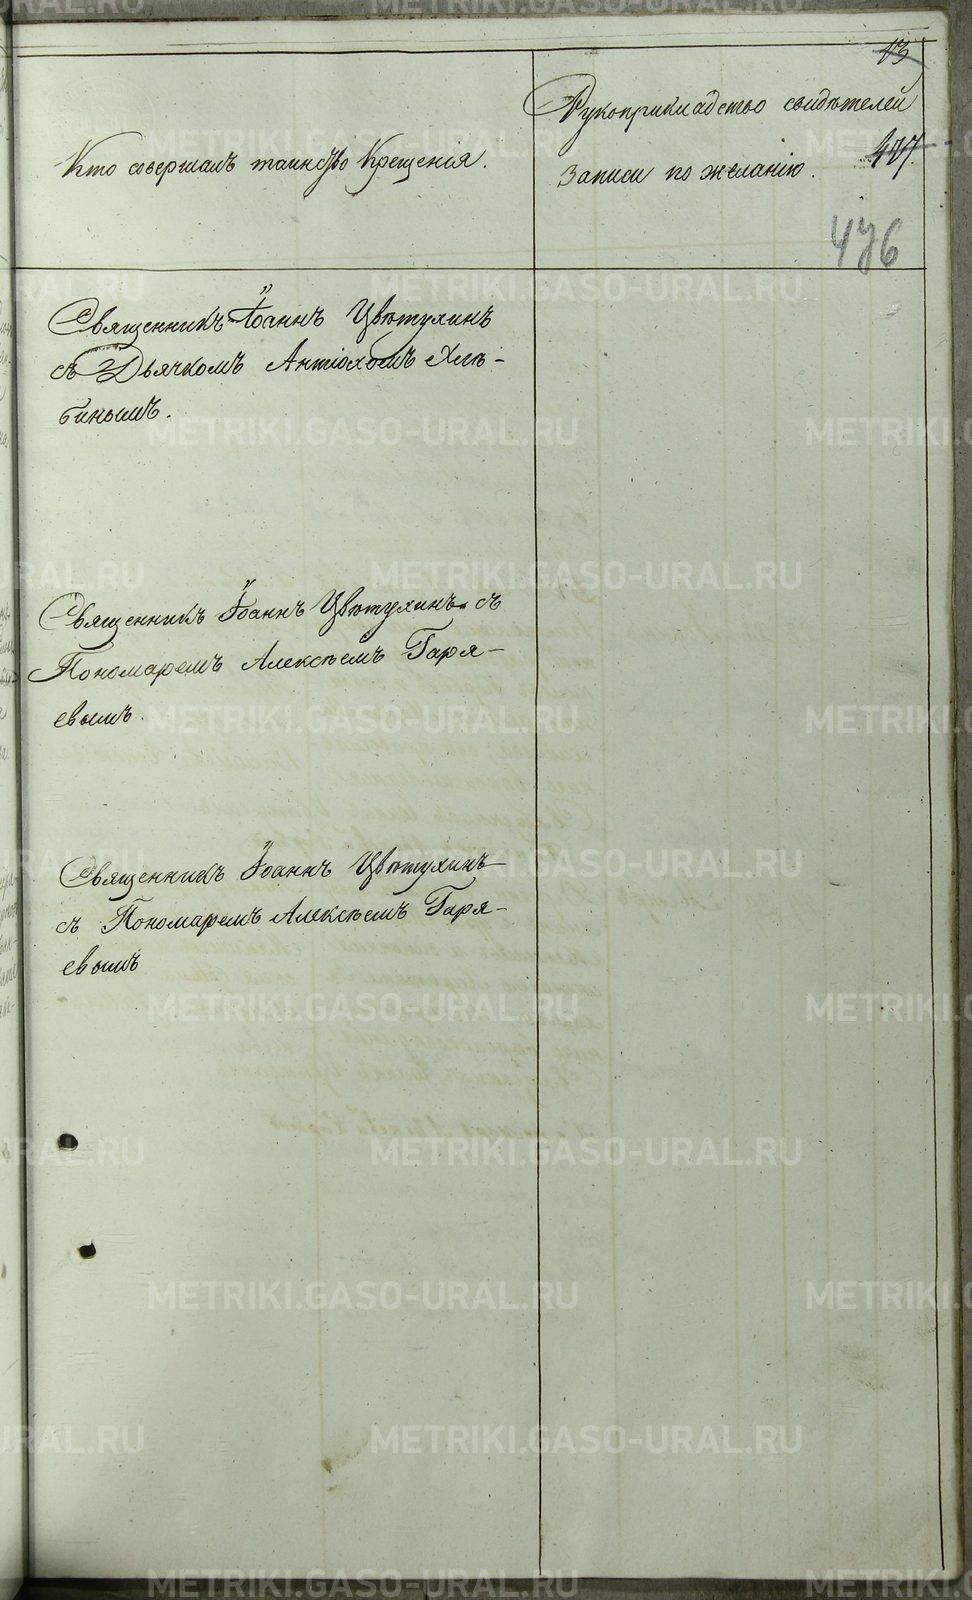 13
Рукоприкладство свидѣтелей
Кто совершалъ таинство Крещенія.
записи по желанію.
477.
476
Священникъ Іоаннъ Цвѣтухинъ
съ Дьячкомъ Антіохомъ Хлѣ-
бинымъ.
Священникъ Іоаннъ Цвѣтухинъ съ
Пономаремъ Алексѣемъ Гаря-
евымъ.
Священникъ Іоаннъ Цвѣтухинъ
съ Пономаремъ Алексѣемъ Гаря-
евымъ
METRIKI.GASO-URAL.RU